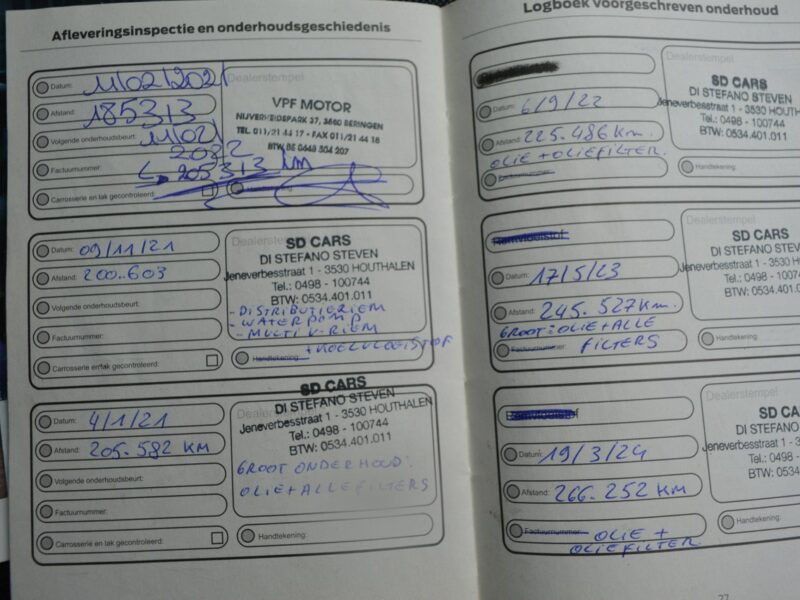 Afleveringsinspectie en onderhoudsgeschiedenis
Datum: 11/02/2021
Dealerstempel
Afstand: 185313
VPF MOTOR
NIJVERHEIDSPARK 37, 3580 BERINGEN
TEL. 011/21 44 17 - FAX 011/21 44 18
BTW BE 0448 304 207
Volgende onderhoudsbeurt: 11/02/
2022
Factuurnummer: 205313 km
Carrosserie en lak gecontroleerd:
Handtekening:
Datum: 09/11/21
Dealerstempel
SD CARS
DI STEFANO STEVEN
Jeneverbesstraat 1 - 3530 HOUTHALEN
Tel.: 0498 - 100744
BTW: 0534.401.011
Afstand: 200.603
Volgende onderhoudsbeurt:
- DISTRIBUTIERIEM
- WATERPOMP
- MULTI V-RIEM
+ KOELVLOEISTOF
Factuurnummer:
Carrosserie en lak gecontroleerd:
Handtekening:
Datum: 4/1/21
Dealerstempel
SD CARS
DI STEFANO STEVEN
Jeneverbesstraat 1 - 3530 HOUTHALEN
Tel.: 0498 - 100744
BTW: 0534.401.011
Afstand: 205.582 KM
Volgende onderhoudsbeurt:
GROOT ONDERHOUD:
OLIE + ALLE FILTERS
Factuurnummer:
Carrosserie en lak gecontroleerd:
Handtekening:
Logboek voorgeschreven onderhoud
SD CARS
DI STEFANO STEVEN
Jeneverbesstraat 1 - 3530 HOUTHA
Tel.: 0498 - 100744
BTW: 0534.401.011
Datum: 6/9/22
Afstand: 225.486 Km.
OLIE + OLIEFILTER.
Factuurnummer:
Handtekening:
Remvloeistof
Dealerstempel
SD CARS
DI STEFANO STEVEN
Jeneverbesstraat 1 - 3530 HOUT
Tel.: 0498 - 100744
BTW: 0534.401.011
Datum: 17/5/23
Afstand: 245.527 Km.
GROOT: OLIE + ALLE
FILTERS
Factuurnummer:
Handtekening:
Dealerstempel
SD CA
DI STEFANO
Jeneverbesstraat 1 - 353
Tel.: 0498 -
BTW: 0534.
Datum: 19/3/24
Afstand: 266.252 KM
Factuurnummer: OLIE +
OLIEFILTER
Handtekening:
77